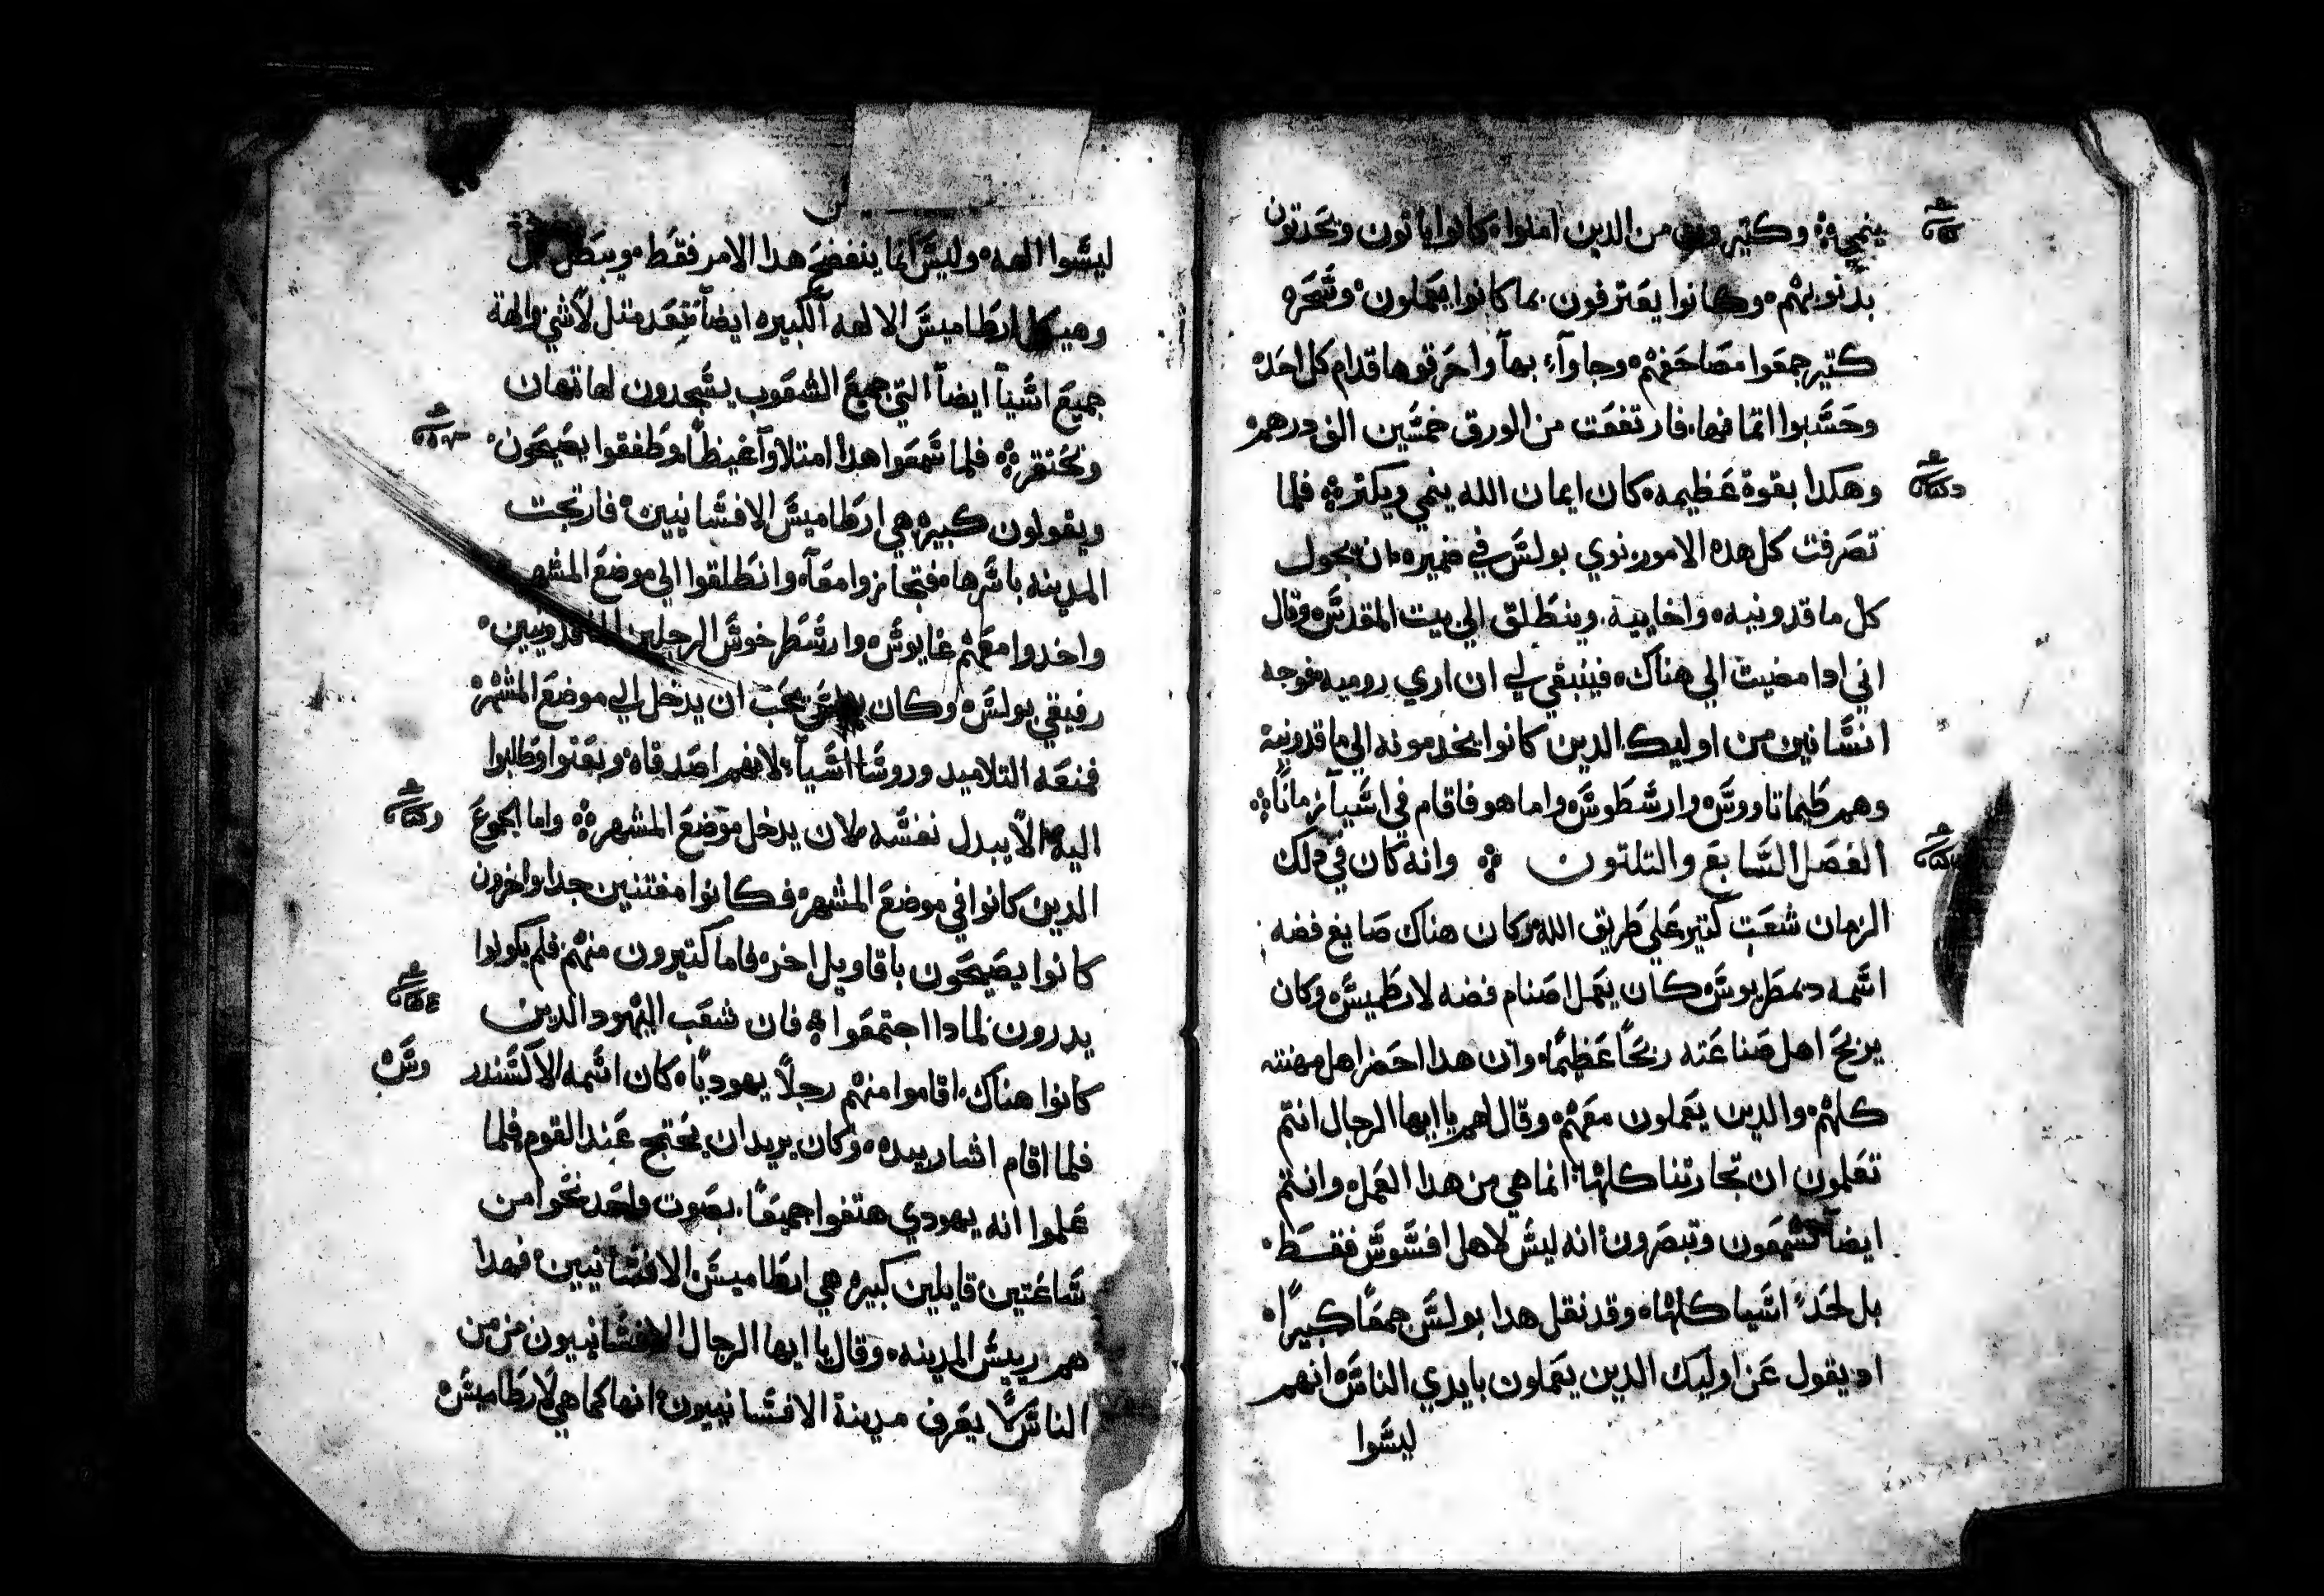 ينمي وكتير من الدين امنوا كانوا ياتون ويحدتون
بدنوبهم وكانوا يعترفون بما كانوا يعملون وسحره
كتير جمعوا مصاحفهم وجاوآء بها واحرقوها قدام كل احد
وحسبوا اتمانها فارتفعت من الورق خمسين الف درهم
وهكدا بقوة عظيمه كان ايمان الله ينمي ويكتر فلما
تصرفت كل هده الامور نوي بولس في ضميره ان يجول
كل ماقدونيه واخاييه وينطلق الي بيت المقدس وقال
اني ادا مضيت الي هناك فينبغي لي ان اري روميه فوجه
انسانين من اوليك الدين كانوا يخدمونه الي ماقدونية
وهم طيماتاووس وارسطوس واما هو فاقام في اسيا زمانًا
الفصل السابع والتلتون وانه كان في دلك
الزمان شعب كتير علي طريق الله وكان هناك صايغ فضه
اسمه دمطريوس كان يعمل اصنام فضه لارطميس وكان
يربح اهل صناعته ربحًا عظيمًا وان هدا احضر اهل مهنته
كلهم والدين يعملون معهم وقال لهم يا ايها الرجال انتم
تعلمون ان تجارتنا كلها انما هي من هدا العمل وانتم
ايضاً تسمعون وتبصرون انه ليس لاهل افسوس فقط
بل لحد اسيا كلها وقد نقل هدا بولس جمعًا كبيرًا
اد يقول عن اوليك الدين يعملون بايدي الناس انهم
ليسوا
ليسوا الهه وليس انما ينفضح هدا الامر فقط ويبطل
وهيكل ارطاميس الالهه الكبيره ايضاً تعد متل لاشي والهة
جميع اسيا ايضاً التي جميع الشعوب يسجدون لها تهان
وتحتقر فلما سمعوا هدا امتلاوآ غيظًا وطفقوا يصيحون
ويقولون كبيره هي ارطاميس الافسانيين فارتجت
المدينه باسرها فتجازوا معاً وانطلقوا الي موضع المشهر
واخدوا معهم غايوس وارسطرخوس الرجلين الماقدونيين
رفيقي بولس وكان بولس يحب ان يدخل الي موضع المشهر
فمنعه التلاميد وروسا اسيا لانهم اصدقاه وبعتوا وطلبوا
اليه الا يبدل نفسه لان يدخل موضع المشهره واما الجموع
الدين كانوا في موضع المشهر فكانوا مفتنين جدا واخرون
كانوا يصيحون باقاويل اخر فاما كتيرون منهم فلم يكونوا
يدرون لمادا اجتمعوا فان شعب اليهود الدين
كانوا هناك اقاموا منهم رجلاً يهوديًا كان اسمه الاكسندر
فلما اقام اشار بيده وكان يريد ان يحتج عند القوم فلما
علموا انه يهودي هتفوا جميعًا بصوت واحد نحوا من
ساعتين قايلين كبيره هي ارطاميس الافسانيين فهدا
هم رييس المدينه وقال يا ايها الرجال الافسانييون من من
الناس لا يعرف مدينة الافسانييون انها كما هي لارطاميس